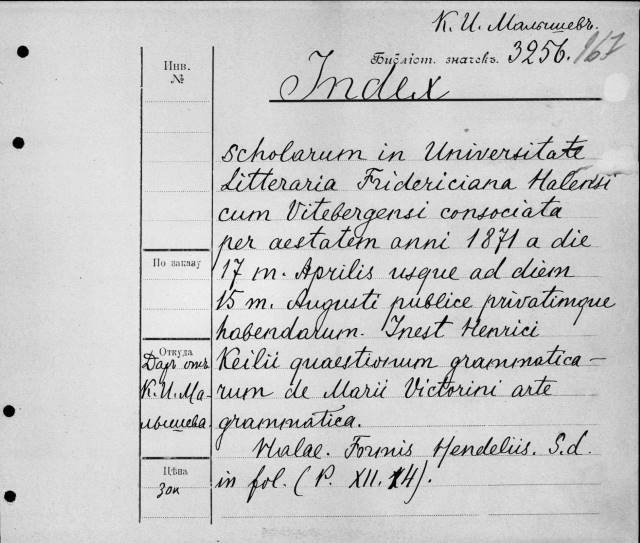 К. И. Малышевъ.
Библіот. значекъ. 3256. 167
Инв. №
Index
scholarum in Universitate
Litteraria Fridericiana Halensi
cum Vitebergensi consociata
per aestatem anni 1871 a die
По заказу
17 m. Aprilis usque ad diem
15 m. Augusti publice privatimque
habendarum. Inest Henrici
Откуда
Даръ отъ
К. И. Ма-
лышева
Keilii quaestionum grammatica-
rum de Marii Victorini arte
grammatica.
Halae. Formis Hendeliis. S. d.
Цѣна
30к
in fol. (P. XII. 14).